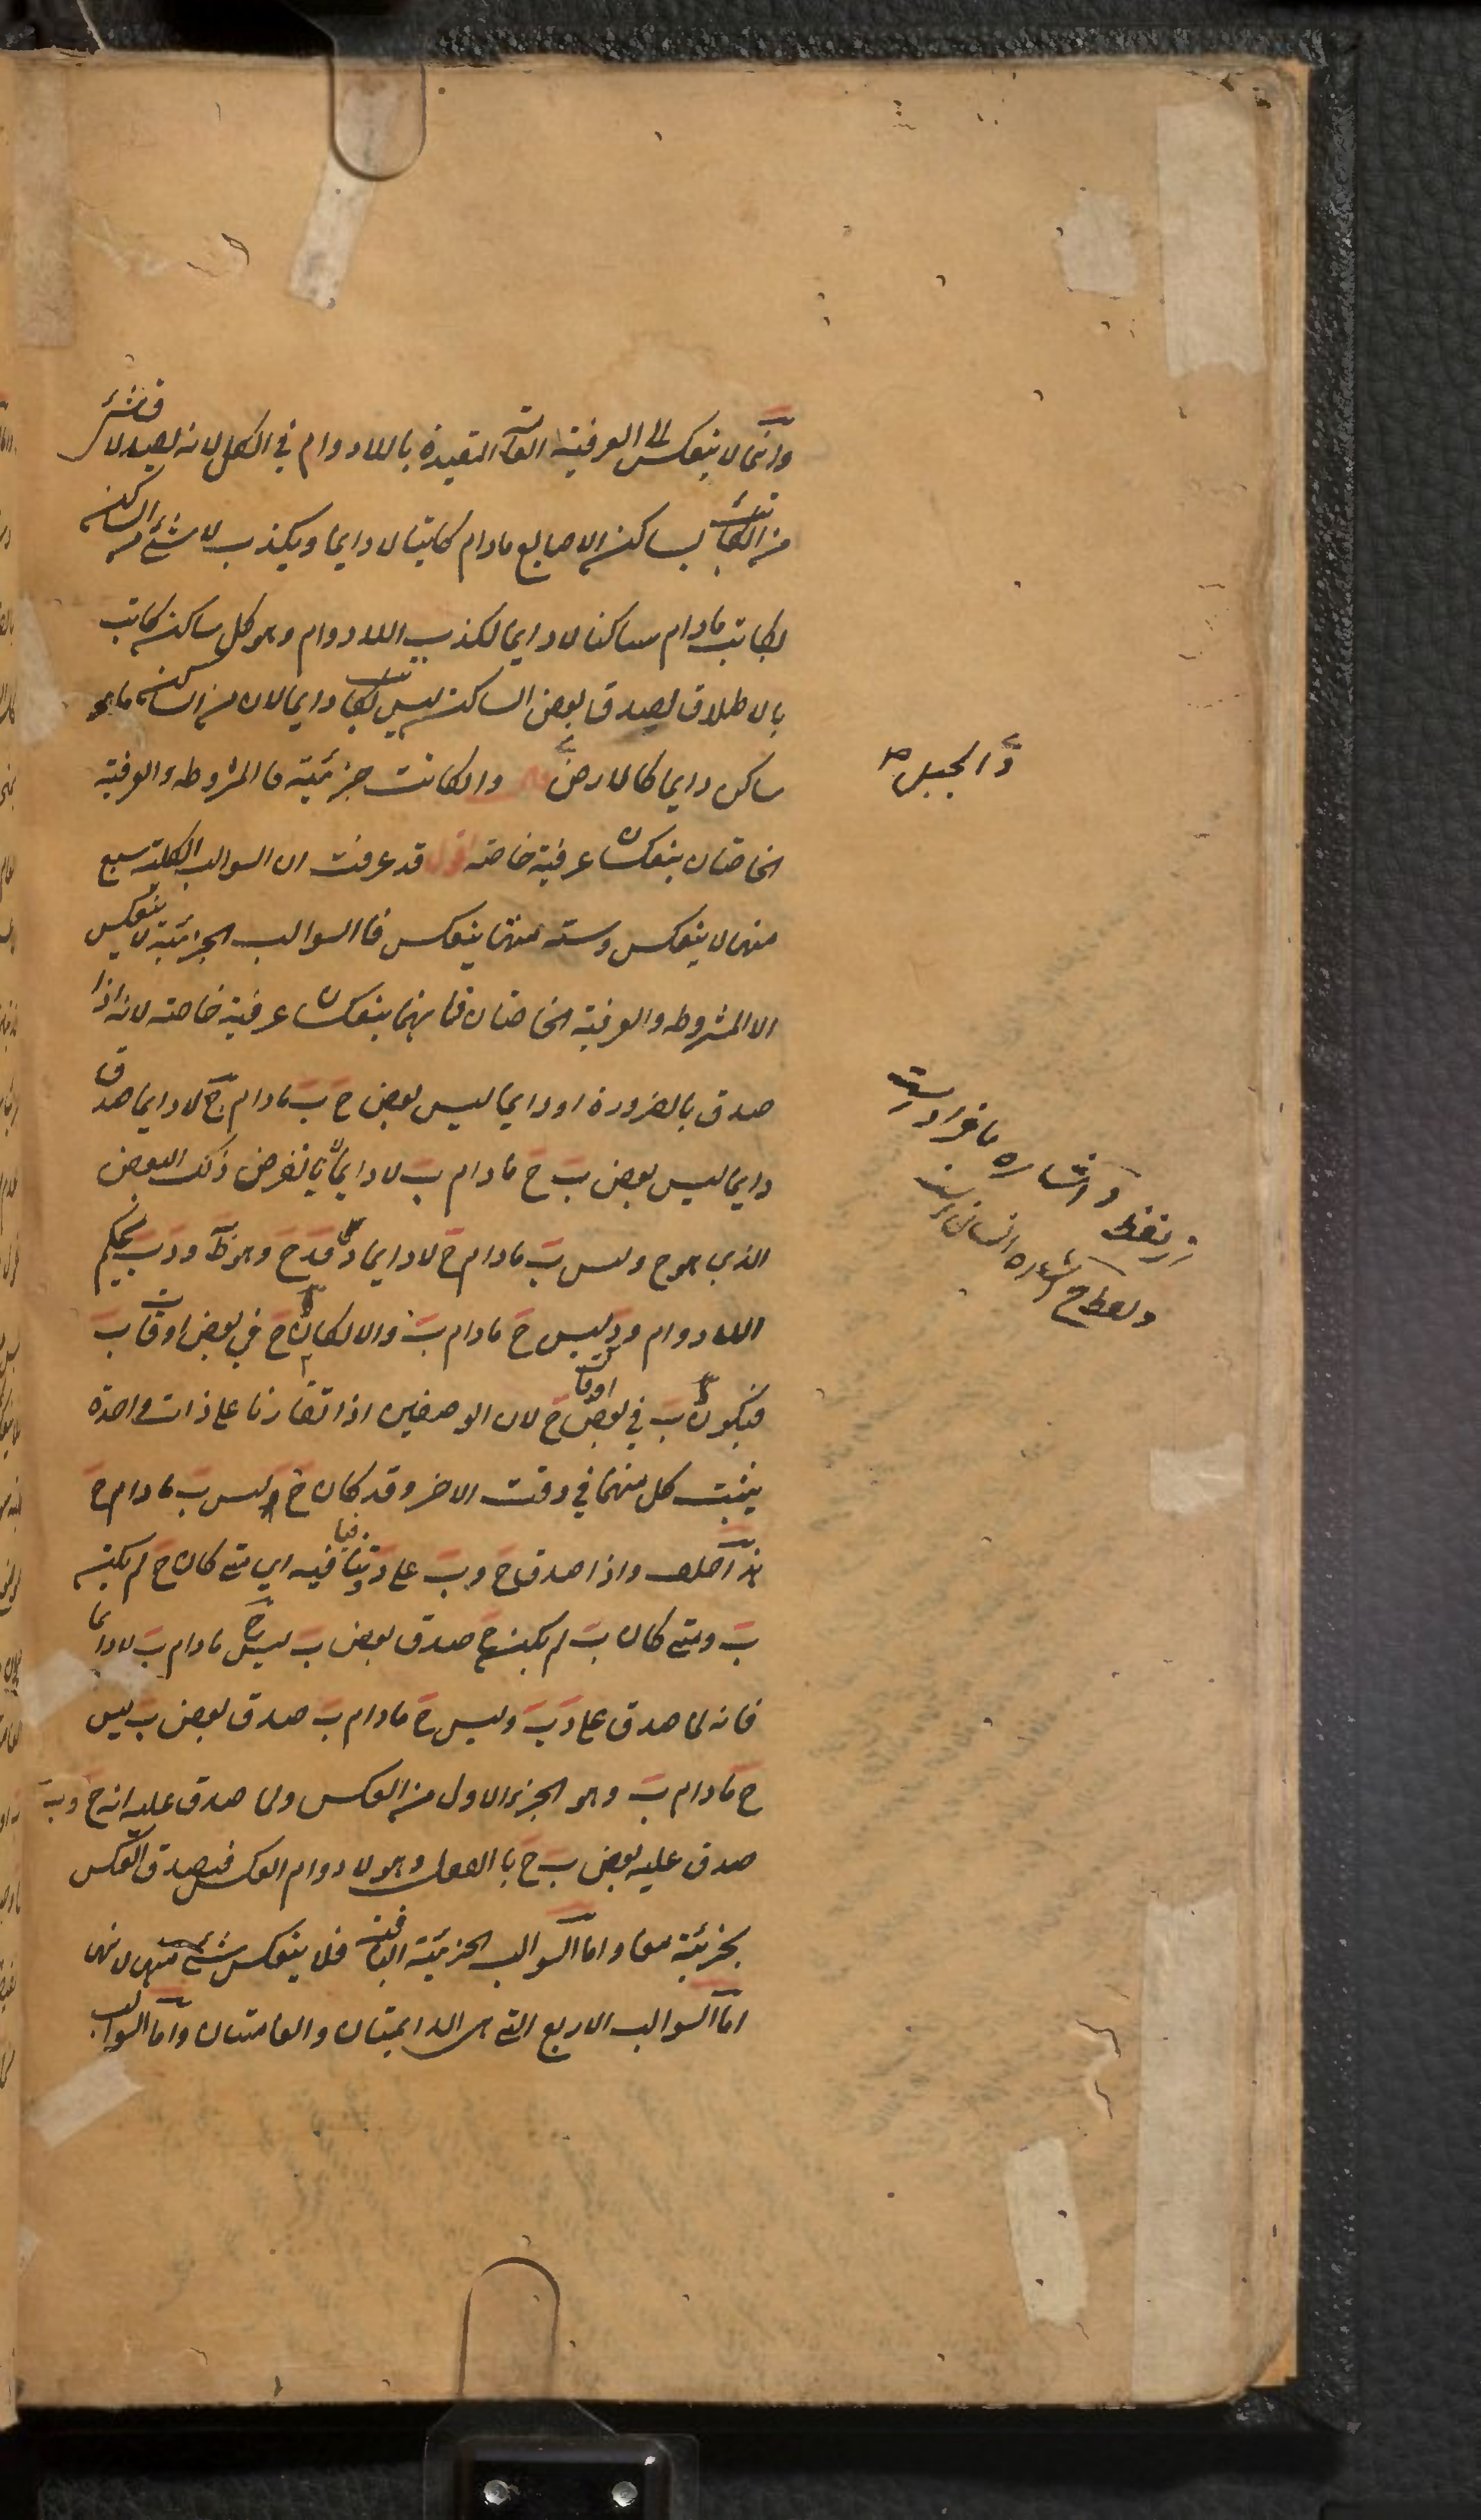 وانما لا ينعكس الى العرفية العامة المقيدة باللادوام في الكل لانه يصدق لا شئ
من الكاتب بساكن الاصابع مادام كاتبا لا دايما ويكذب لا شئ من الساكن
بكاتب مادام ساكنا لا دايما لكذب اللادوام وهو كل ساكن كاتب
بالاطلاق لصدق بعض الساكن ليس بكاتب دايما لان من الساكن ما هو
ساكن دايما كالارض وان كانت جزئية فالمشروطه والعرفية
الخاصتان ينعكسان عرفية خاصه اقول قد عرفت ان السوالب الكلية سبع
منها لا ينعكس وستة منها ينعكس فالسوالب الجزئية لا ينعكس
الا المشروطه والعرفية الخاصتان فانهما ينعكسان عرفية خاصة لانه اذا
صدق بالضرورة او دايما ليس بعض ج ب مادام ج لا دايما صدق
دايما ليس بعض ب ج مادام ب لا دايما لانا نفرض ذلك البعض
الذي هو ج وليس ب مادام ج لا دايما د فد ج وهو ظ ود ب بحكم
اللادوام ود ليس ج مادام ب والا لكان ج في بعض اوقات ب
فيكون ب في بعض اوقات ج لان الوصفين اذا تقارنا على ذات واحدة
يثبت كل منهما في وقت الاخر وقد كان ج وليس ب مادام ج
هذا خلف واذا صدق ج وب على د وتنافيا فيه اي متى كان ج لم يكن
ب ومتى كان ب لم يكن ج صدق بعض ب ليس ج مادام ب لا دايما
فانه لما صدق على د ب وليس ج مادام ب صدق بعض ب ليس
ج مادام ب وهو الجزء الاول من العكس ولما صدق عليه انه ج وب
صدق عليه بعض ب ج بالفعل وهو لا دوام العكس فيصدق العكس
بجزئية معا واما السوالب الجزئية الباقية فلا ينعكس شئ منها لانها
اما السوالب الاربع التي هي الدايمتان والعامتان واما السوالب
والجبل